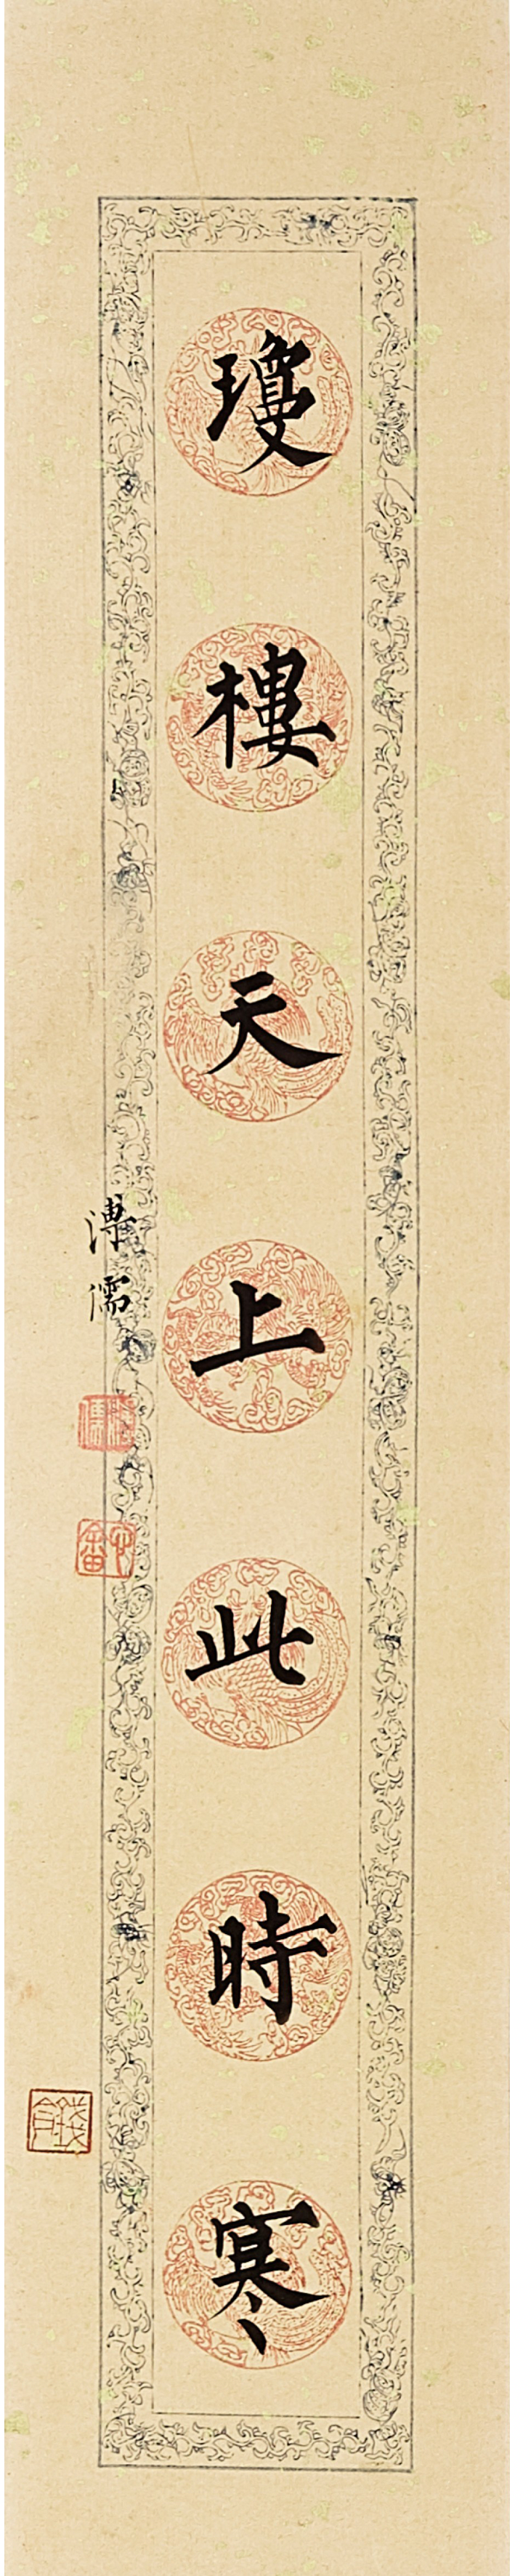 瓊樓天上此時寒
溥儒